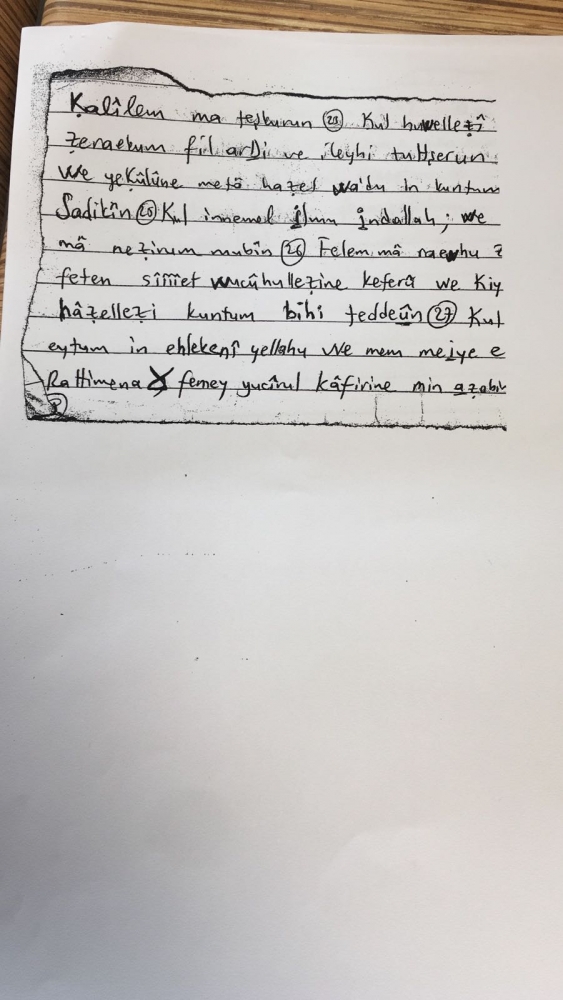 Ḳalîlem ma teşkurun (23) Kul huwelleẕî
ẕeraekum fil arDi ve ileyhi tuHşerun.
We yeKûlûne metâ hazel wa'du in kuntum
Sadikîn (25) Kul innemel ilmu indallah; we
mâ neẕirum mubîn (26) Felem mâ raewhu z
feten sîîîet wucûhulleẕine keferû we Kiy
hâẕelleẕi kuntum bihi teddeûn (27) Kul
eytum in ehlekenî yellahu we mem meiye e
RaHimena femey yucîrul kâfirine min aẕabir